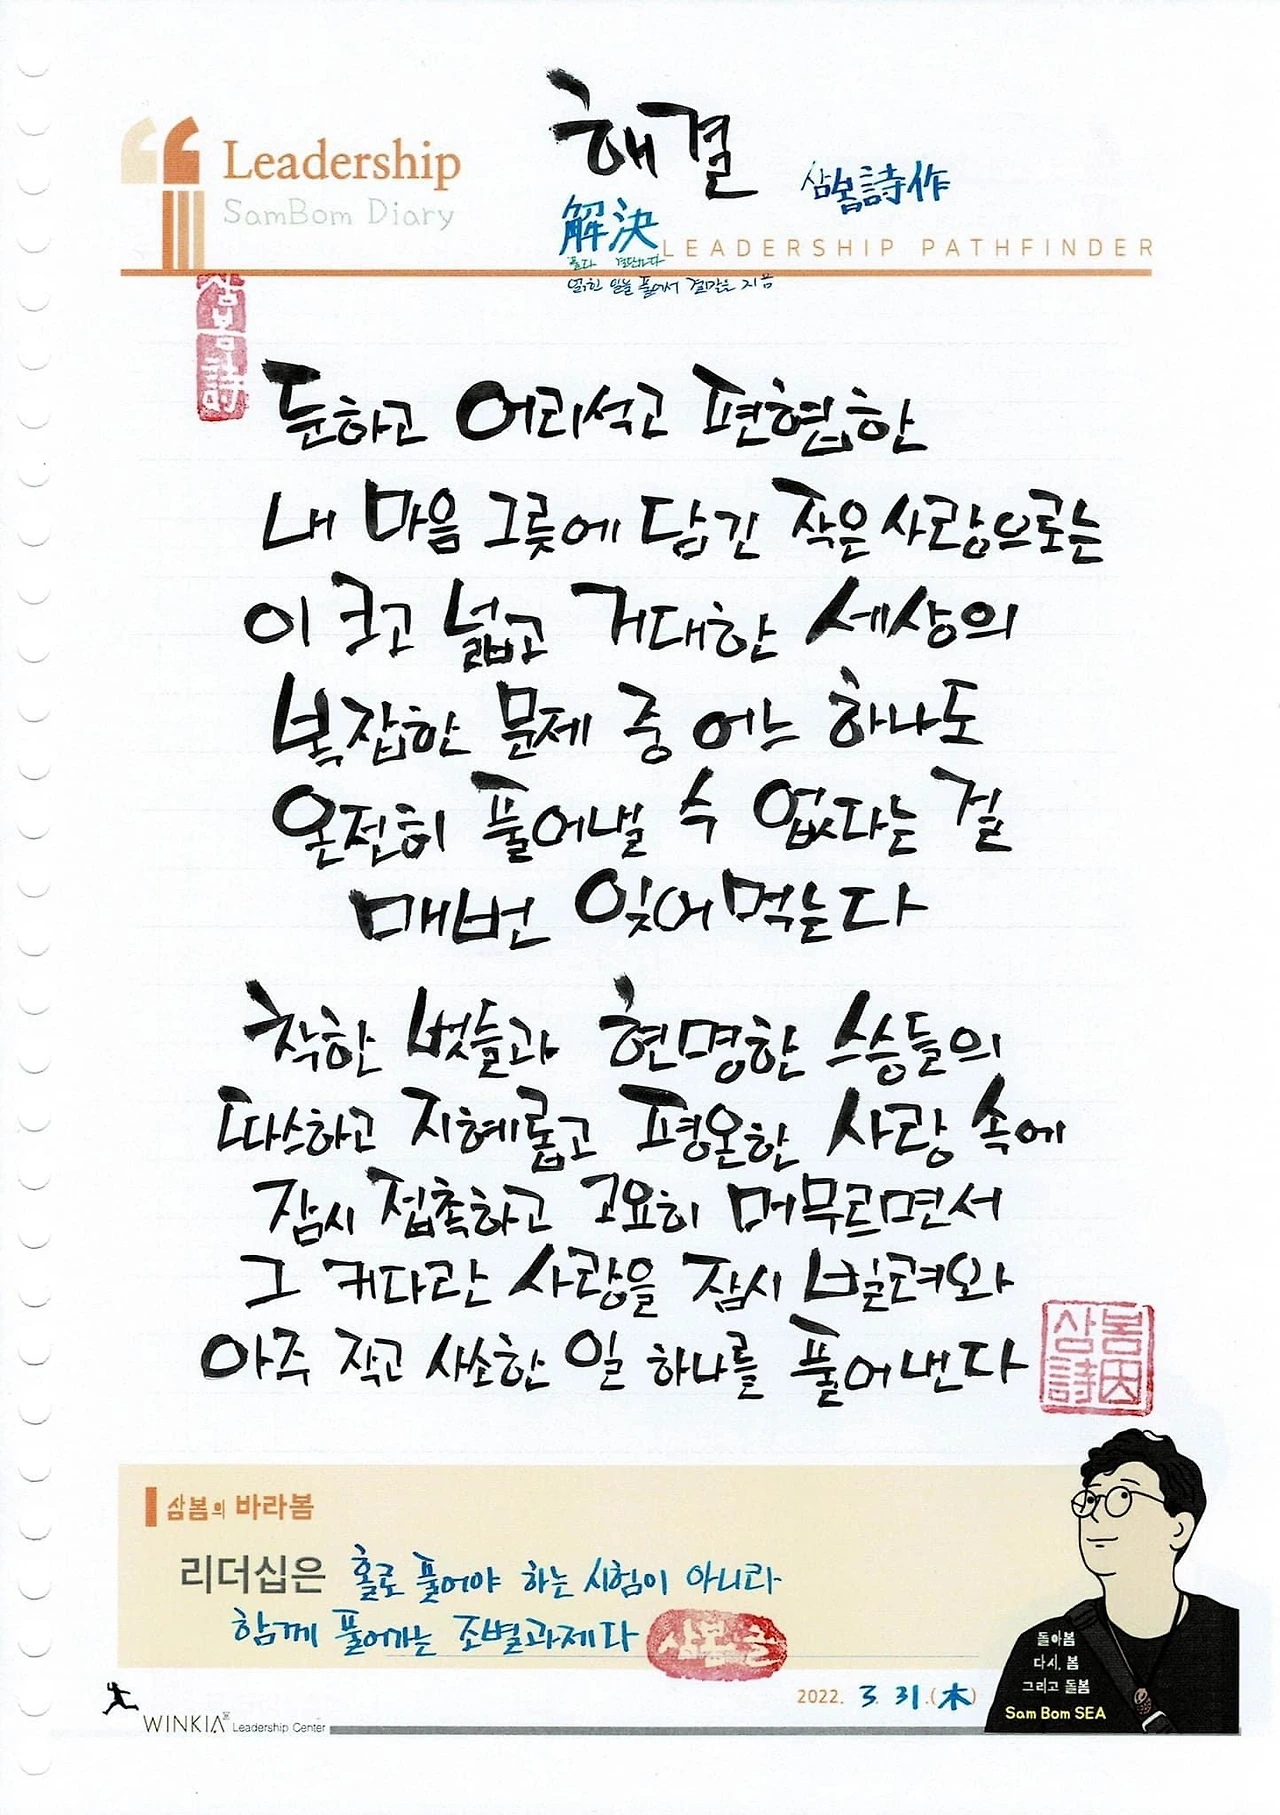 해결
Leadership
삼봄詩作
SamBom Diary
解決
LEADERSHIP PATHFINDER
풀다 결단하다
얽힌 일을 풀어서 결말을 지음
삼봄詩
둔하고 어리석고 편협한
내 마음 그릇에 담긴 작은 사랑으로는
이 크고 넓고 거대한 세상의
복잡한 문제 중 어느 하나도
온전히 풀어낼 수 없다는 걸
매번 잊어먹는다
착한 벗들과 현명한 스승들의
따스하고 지혜롭고 평온한 사랑 속에
잠시 접촉하고 고요히 머무르면서
그 커다란 사랑을 잠시 빌려와
아주 작고 사소한 일 하나를 풀어낸다
삼봄
詩因
삼봄의 바라봄
리더십은 홀로 풀어야 하는 시험이 아니라
함께 풀어가는 조별과제다
돌아봄
다시, 봄
그리고 돌봄
Sam Bom SEA
2022. 3. 31.(木)
WINKIA Leadership Center